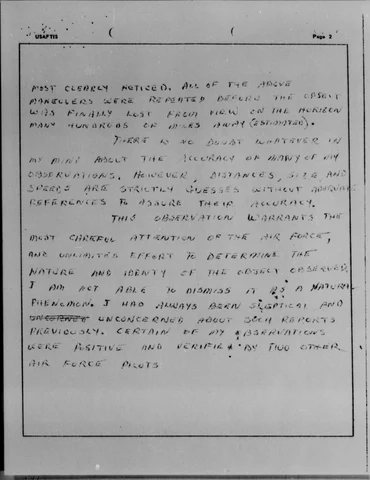 USAFTIS
Page 2
MOST CLEARLY NOTICED. ALL OF THE ABOVE
MANEUVERS WERE REPEATED BEFORE THE OBJECT
WAS FINALLY LOST FROM VIEW ON THE HORIZON
MANY HUNDREDS OF MILES AWAY (ESTIMATED).
THERE IS NO DOUBT WHATEVER IN
MY MIND ABOUT THE ACCURACY OF MANY OF MY
OBSERVATIONS. HOWEVER, DISTANCES, SIZE AND
SPEEDS ARE STRICTLY GUESSES WITHOUT ADEQUATE
REFERENCES TO ASSURE THEIR ACCURACY.
THIS OBSERVATION WARRANTS THE
MOST CAREFUL ATTENTION OF THE AIR FORCE,
AND UNLIMITED EFFORT TO DETERMINE THE
NATURE AND IDENTY OF THE OBJECT OBSERVED,
I AM NOT ABLE TO DISMISS IT AS A NATURAL
PHENOMON. I HAD ALWAYS BEEN SKEPTICAL AND
UNCONCERNED ABOUT SUCH REPORTS
PREVIOUSLY. CERTAIN OF MY OBSERVATIONS
WERE POSITIVE AND VERIFIED BY TWO OTHER
AIR FORCE PILOTS